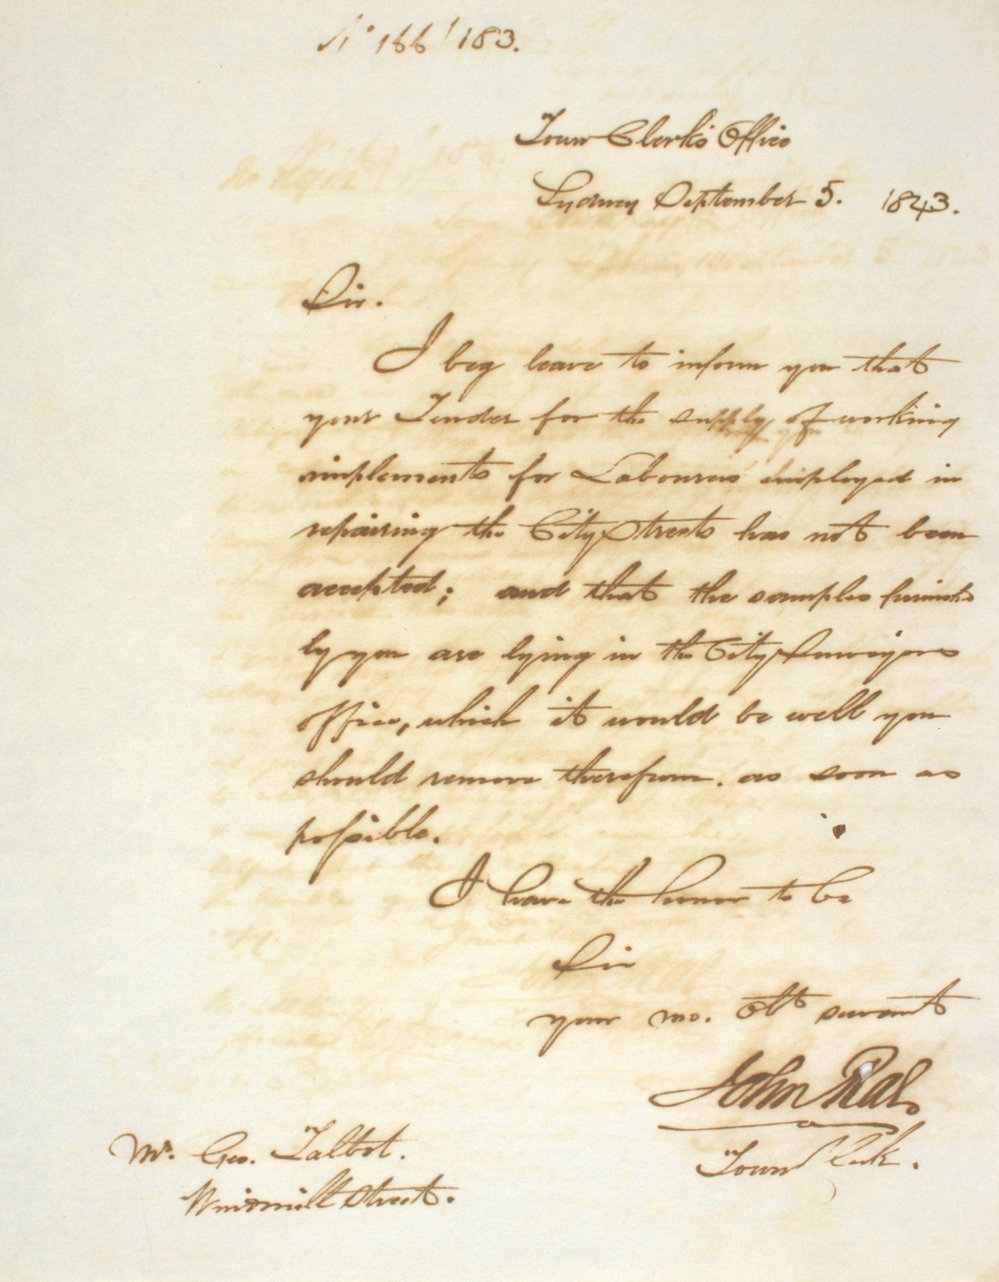 No 166/183.
Town Clerk's Office
Sydney September 5. 1843.
Sir.
I beg leave to inform you that
your Tender for the supply of working
implements for Labourers employed in
repairing the City Streets has not been
accepted; and that the samples furnish
by you are lying in the City Surveyors
office, which it would be well you
should remove therefrom. as soon as
possible.
I have the honor to be
Sir
your mo. Obt servant
John Rae
Town Clerk.
Mr. Geo. Talbot.
Windmill Street.